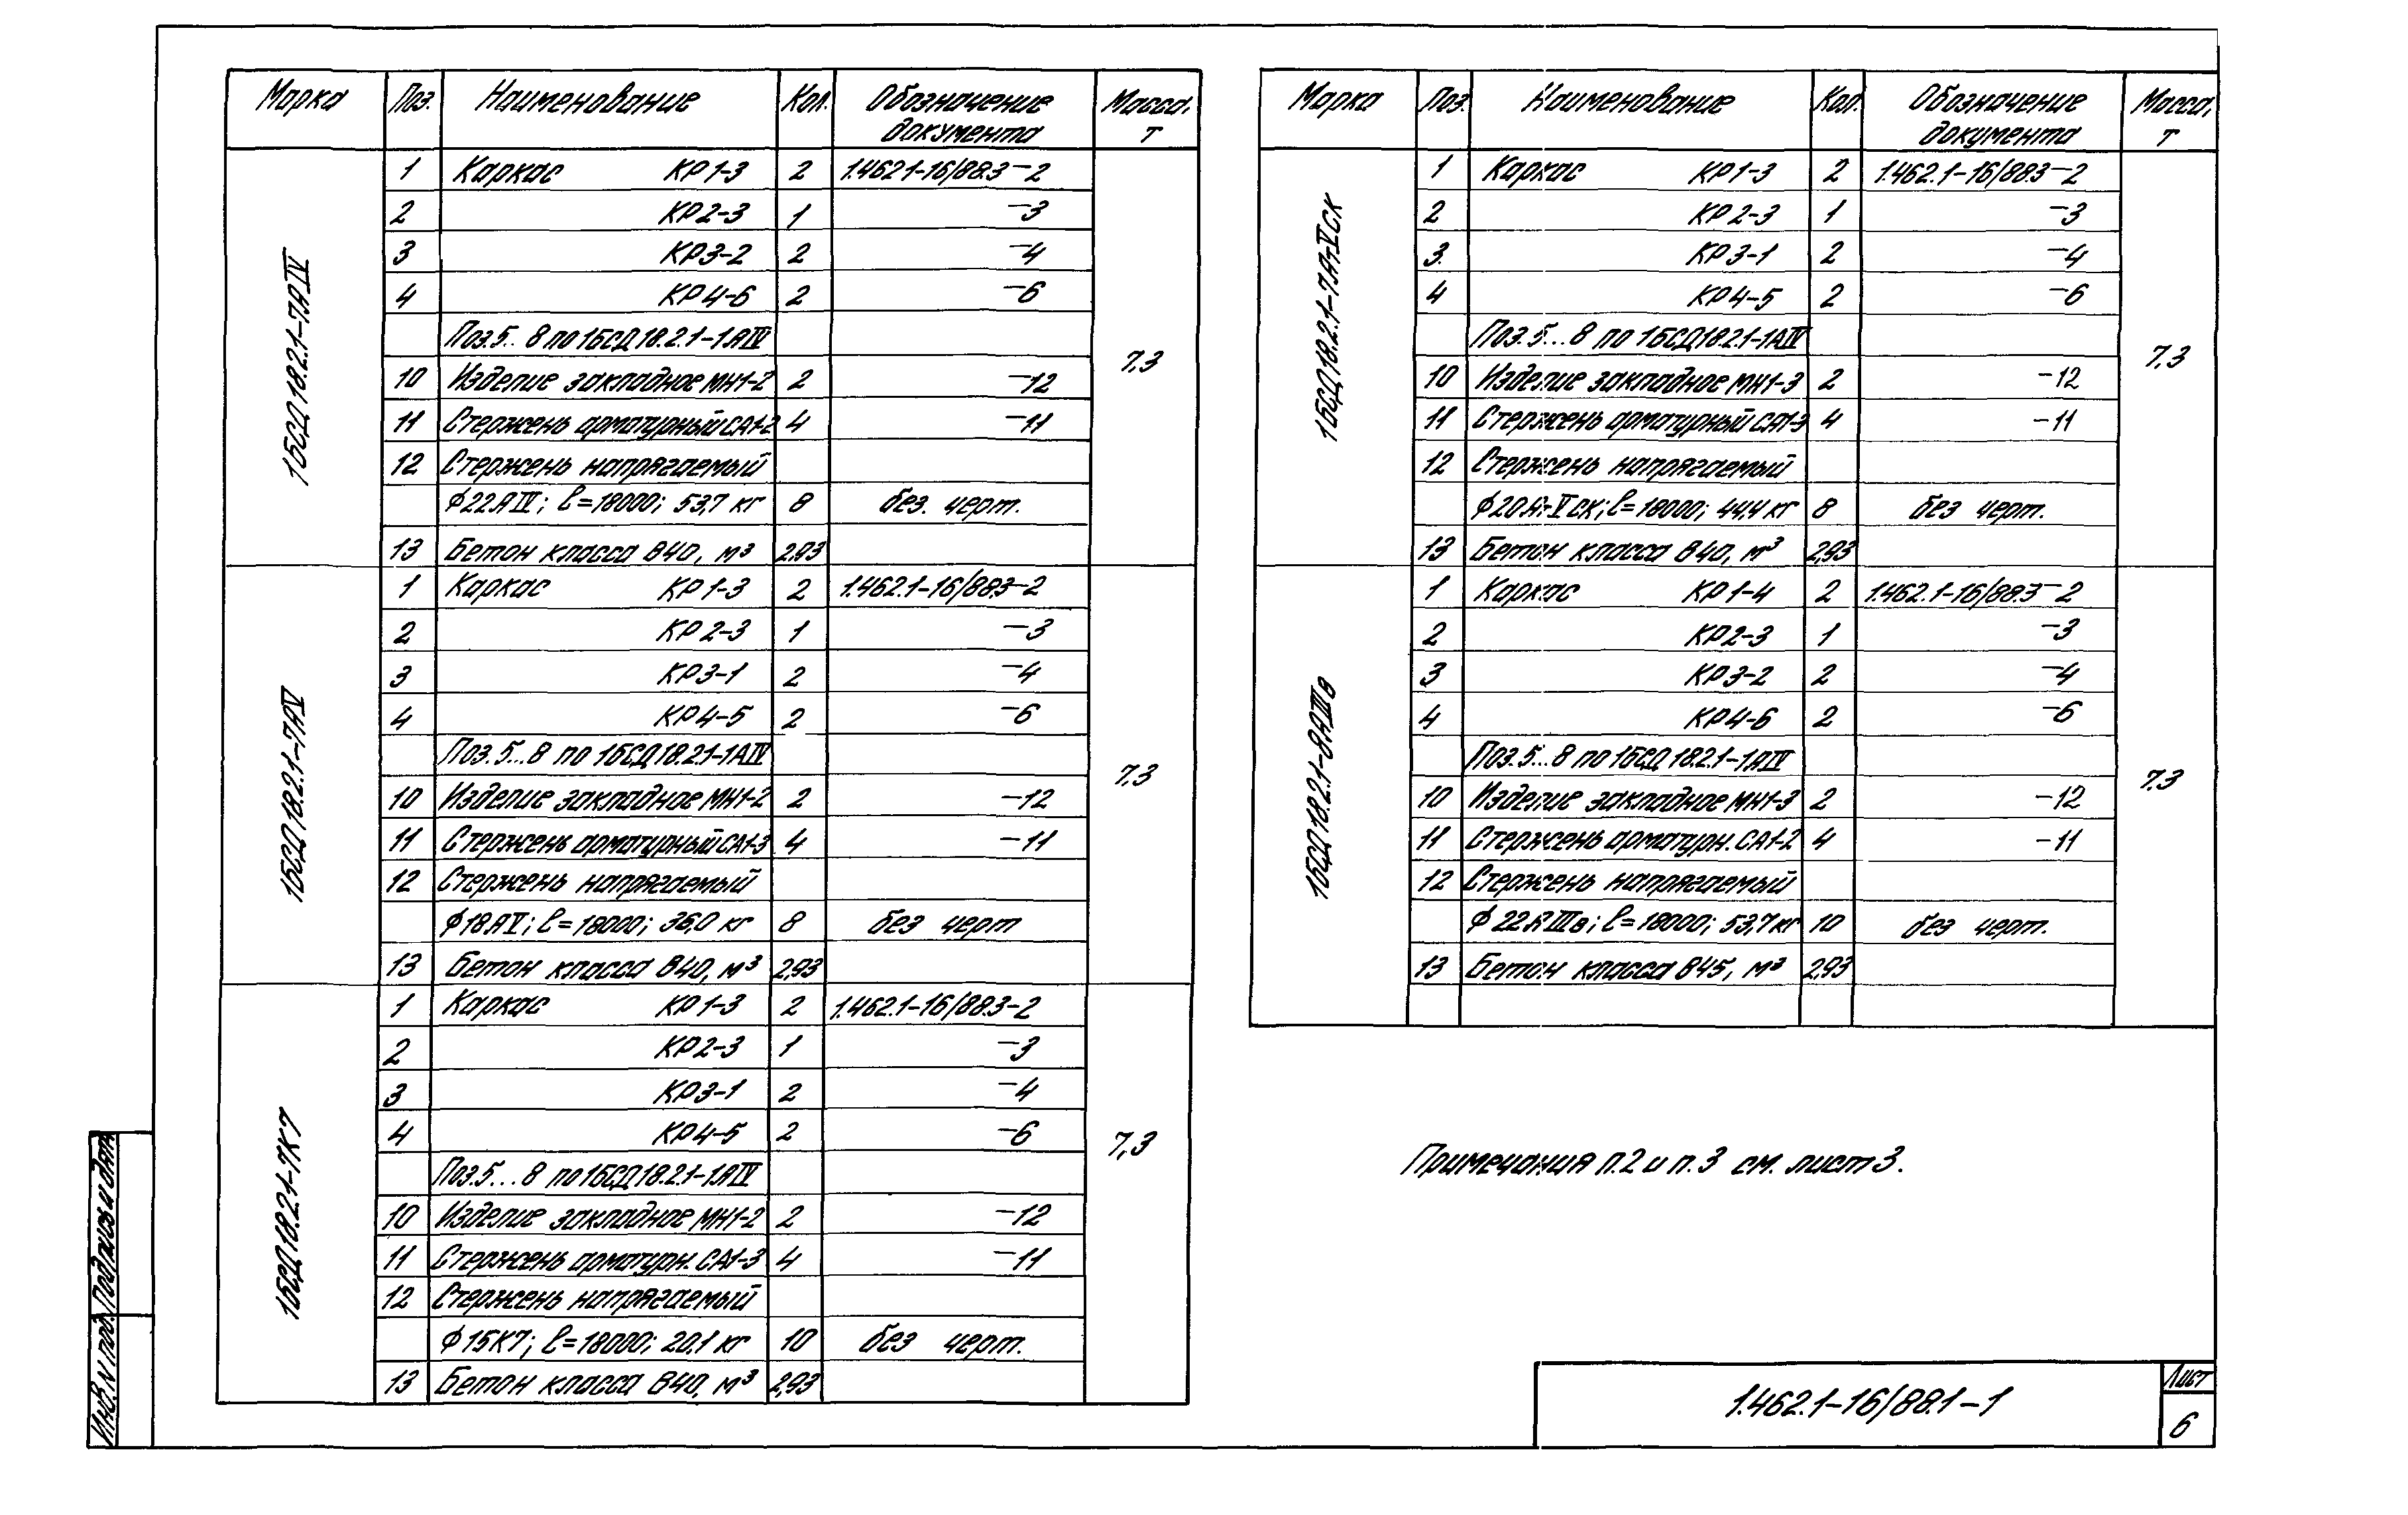 Марка Поз. Наименование Кол. Обозначение документа Масса, т
1БСД18.2.1-7АIV
1 Каркас КР1-3 2 1.462.1-16/88.3-2
2 КР2-3 1 -3
3 КР3-2 2 -4
4 КР4-6 2 -6
Поз.5...8 по 1БСД18.2.1-1АIV
7,3
10 Изделие закладное МН1-2 2 -12
11 Стержень арматурный СА1-2 4 -11
12 Стержень напрягаемый
ф22АIV; ℓ=18000; 53,7 кг 8 без. черт.
13 Бетон класса В40, м³ 2,93
1БСД18.2.1-7АV
1 Каркас КР1-3 2 1.462.1-16/88.3-2
2 КР2-3 1 -3
3 КР3-1 2 -4
4 КР4-5 2 -6
Поз.5...8 по 1БСД18.2.1-1АIV
7,3
10 Изделие закладное МН1-2 2 -12
11 Стержень арматурный СА1-3 4 -11
12 Стержень напрягаемый
ф18АV; ℓ=18000; 36,0 кг 8 без черт
13 Бетон класса В40, м³ 2,93
1БСД18.2.1-7К7
1 Каркас КР1-3 2 1.462.1-16/88.3-2
2 КР2-3 1 -3
3 КР3-1 2 -4
4 КР4-5 2 -6
7,3
Поз.5...8 по 1БСД18.2.1-1АIV
10 Изделие закладное МН1-2 2 -12
11 Стержень арматурн. СА1-3 4 -11
12 Стержень напрягаемый
ф15К7; ℓ=18000; 20,1 кг 10 без черт.
13 Бетон класса В40, м³ 2,93
Марка Поз. Наименование Кол. Обозначение документа Масса, т
1БСД18.2.1-7АтVСК
1 Каркас КР1-3 2 1.462.1-16/88.3-2
2 КР2-3 1 -3
3. КР3-1 2 -4
4 КР4-5 2 -6
Поз.5...8 по 1БСД18.2.1-1АIV
7,3
10 Изделие закладное МН1-3 2 -12
11 Стержень арматурный СА1-3 4 -11
12 Стержень напрягаемый
ф20Ат-VСК; ℓ=18000; 44,4 кг 8 без черт.
13 Бетон класса В40, м³ 2,93
1БСД18.2.1-8АIIIв
1 Каркас КР1-4 2 1.462.1-16/88.3-2
2 КР2-3 1 -3
3 КР3-2 2 -4
4 КР4-6 2 -6
Поз.5...8 по 1БСД18.2.1-1АIV
7,3
10 Изделие закладное МН1-3 2 -12
11 Стержень арматурн. СА1-2 4 -11
12 Стержень напрягаемый
ф22АIIIв; ℓ=18000; 53,7 кг 10 без черт.
13 Бетон класса В45, м³ 2,93
Примечания п.2 и п.3 см. лист 3.
1.462.1-16/88.1-1
Лист
6
Инв.N подл. Подпись и дата